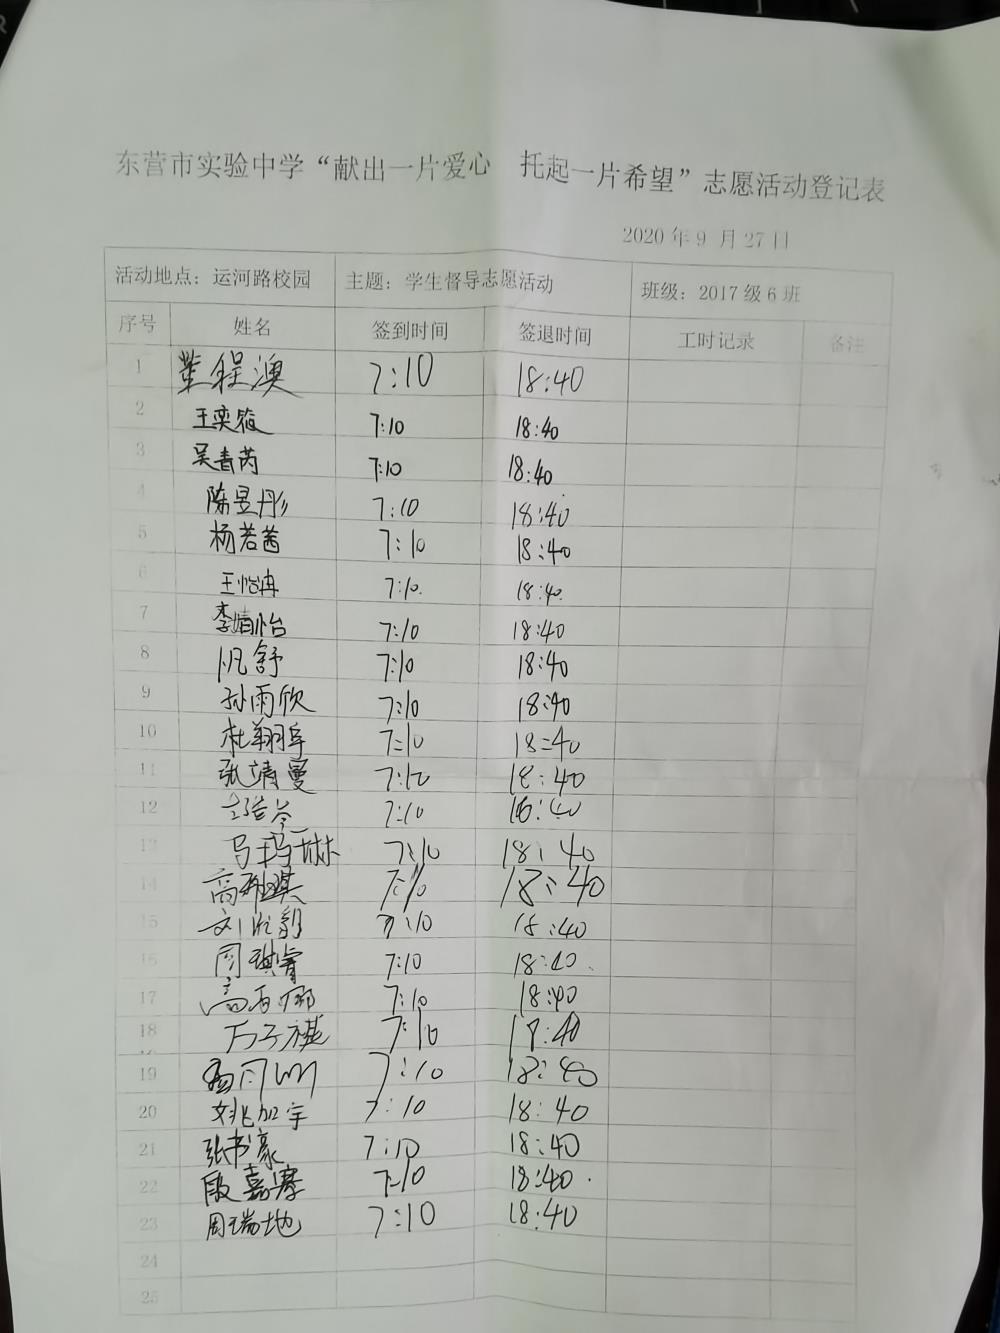 东营市实验中学“献出一片爱心 托起一片希望”志愿活动登记表
2020年9月27日
活动地点：运河路校园 主题：学生督导志愿活动 班级：2017级6班
序号 姓名 签到时间 签退时间 工时记录 备注
1 董程澳 7:10 18:40
2 王奕筱 7:10 18:40
3 吴春芮 7:10 18:40
4 陈昱彤 7:10 18:40
5 杨若茜 7:10 18:40
6 王怡冉 7:10 18:40
7 李婧怡 7:10 18:40
8 舒 7:10 18:40
9 孙雨欣 7:10 18:40
10 杜翔宇 7:10 18:40
11 张靖曼 7:10 18:40
12 7:10 18:40
13 马玛琳 7:10 18:40
14 高 7:10 18:40
15 刘 7:10 18:40
16 周琪睿 7:10 18:40
17 高 7:10 18:40
18 万子祺 7:10 18:40
19 7:10 18:40
20 姚加宇 7:10 18:40
21 张书豪 7:10 18:40
22 段嘉 7:10 18:40
23 周瑞地 7:10 18:40
24
25